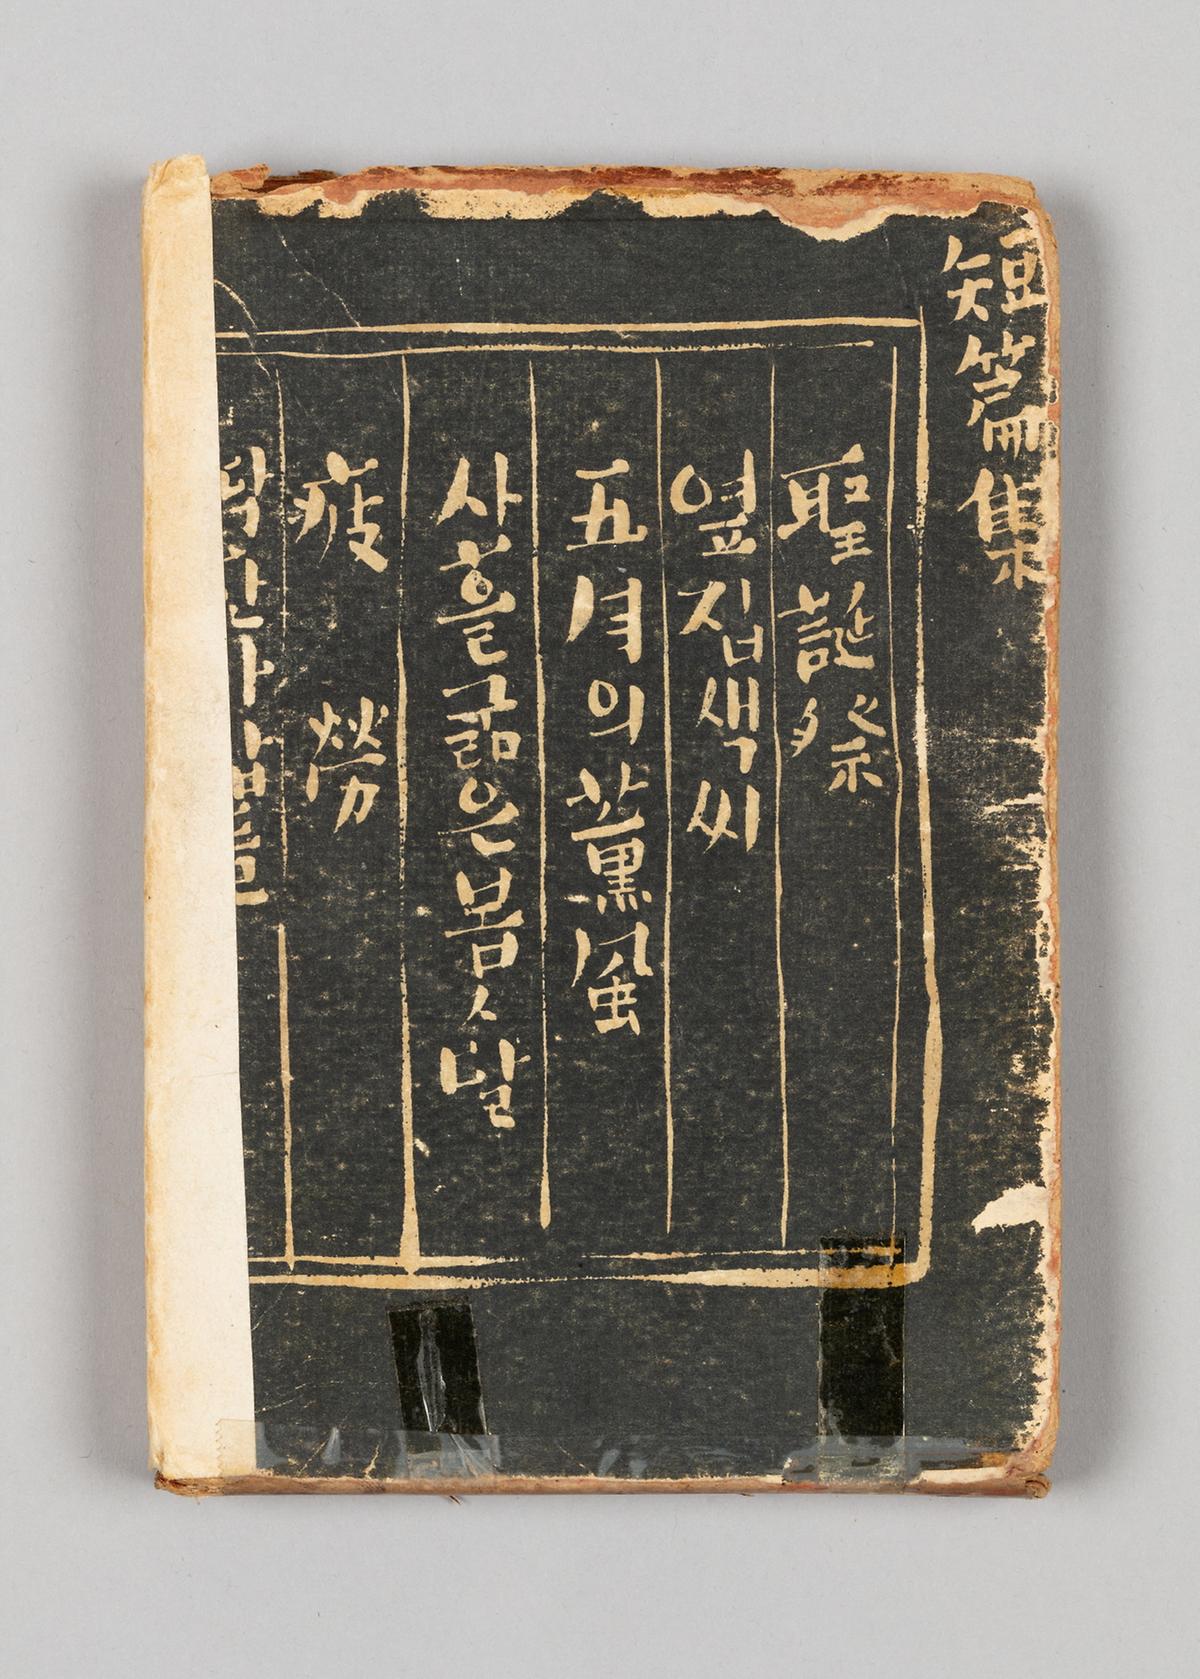 短篇集
聖誕祭
옆집색씨
五月의薰風
사흘굶은봄ㅅ달
疲勞
딱한사람들